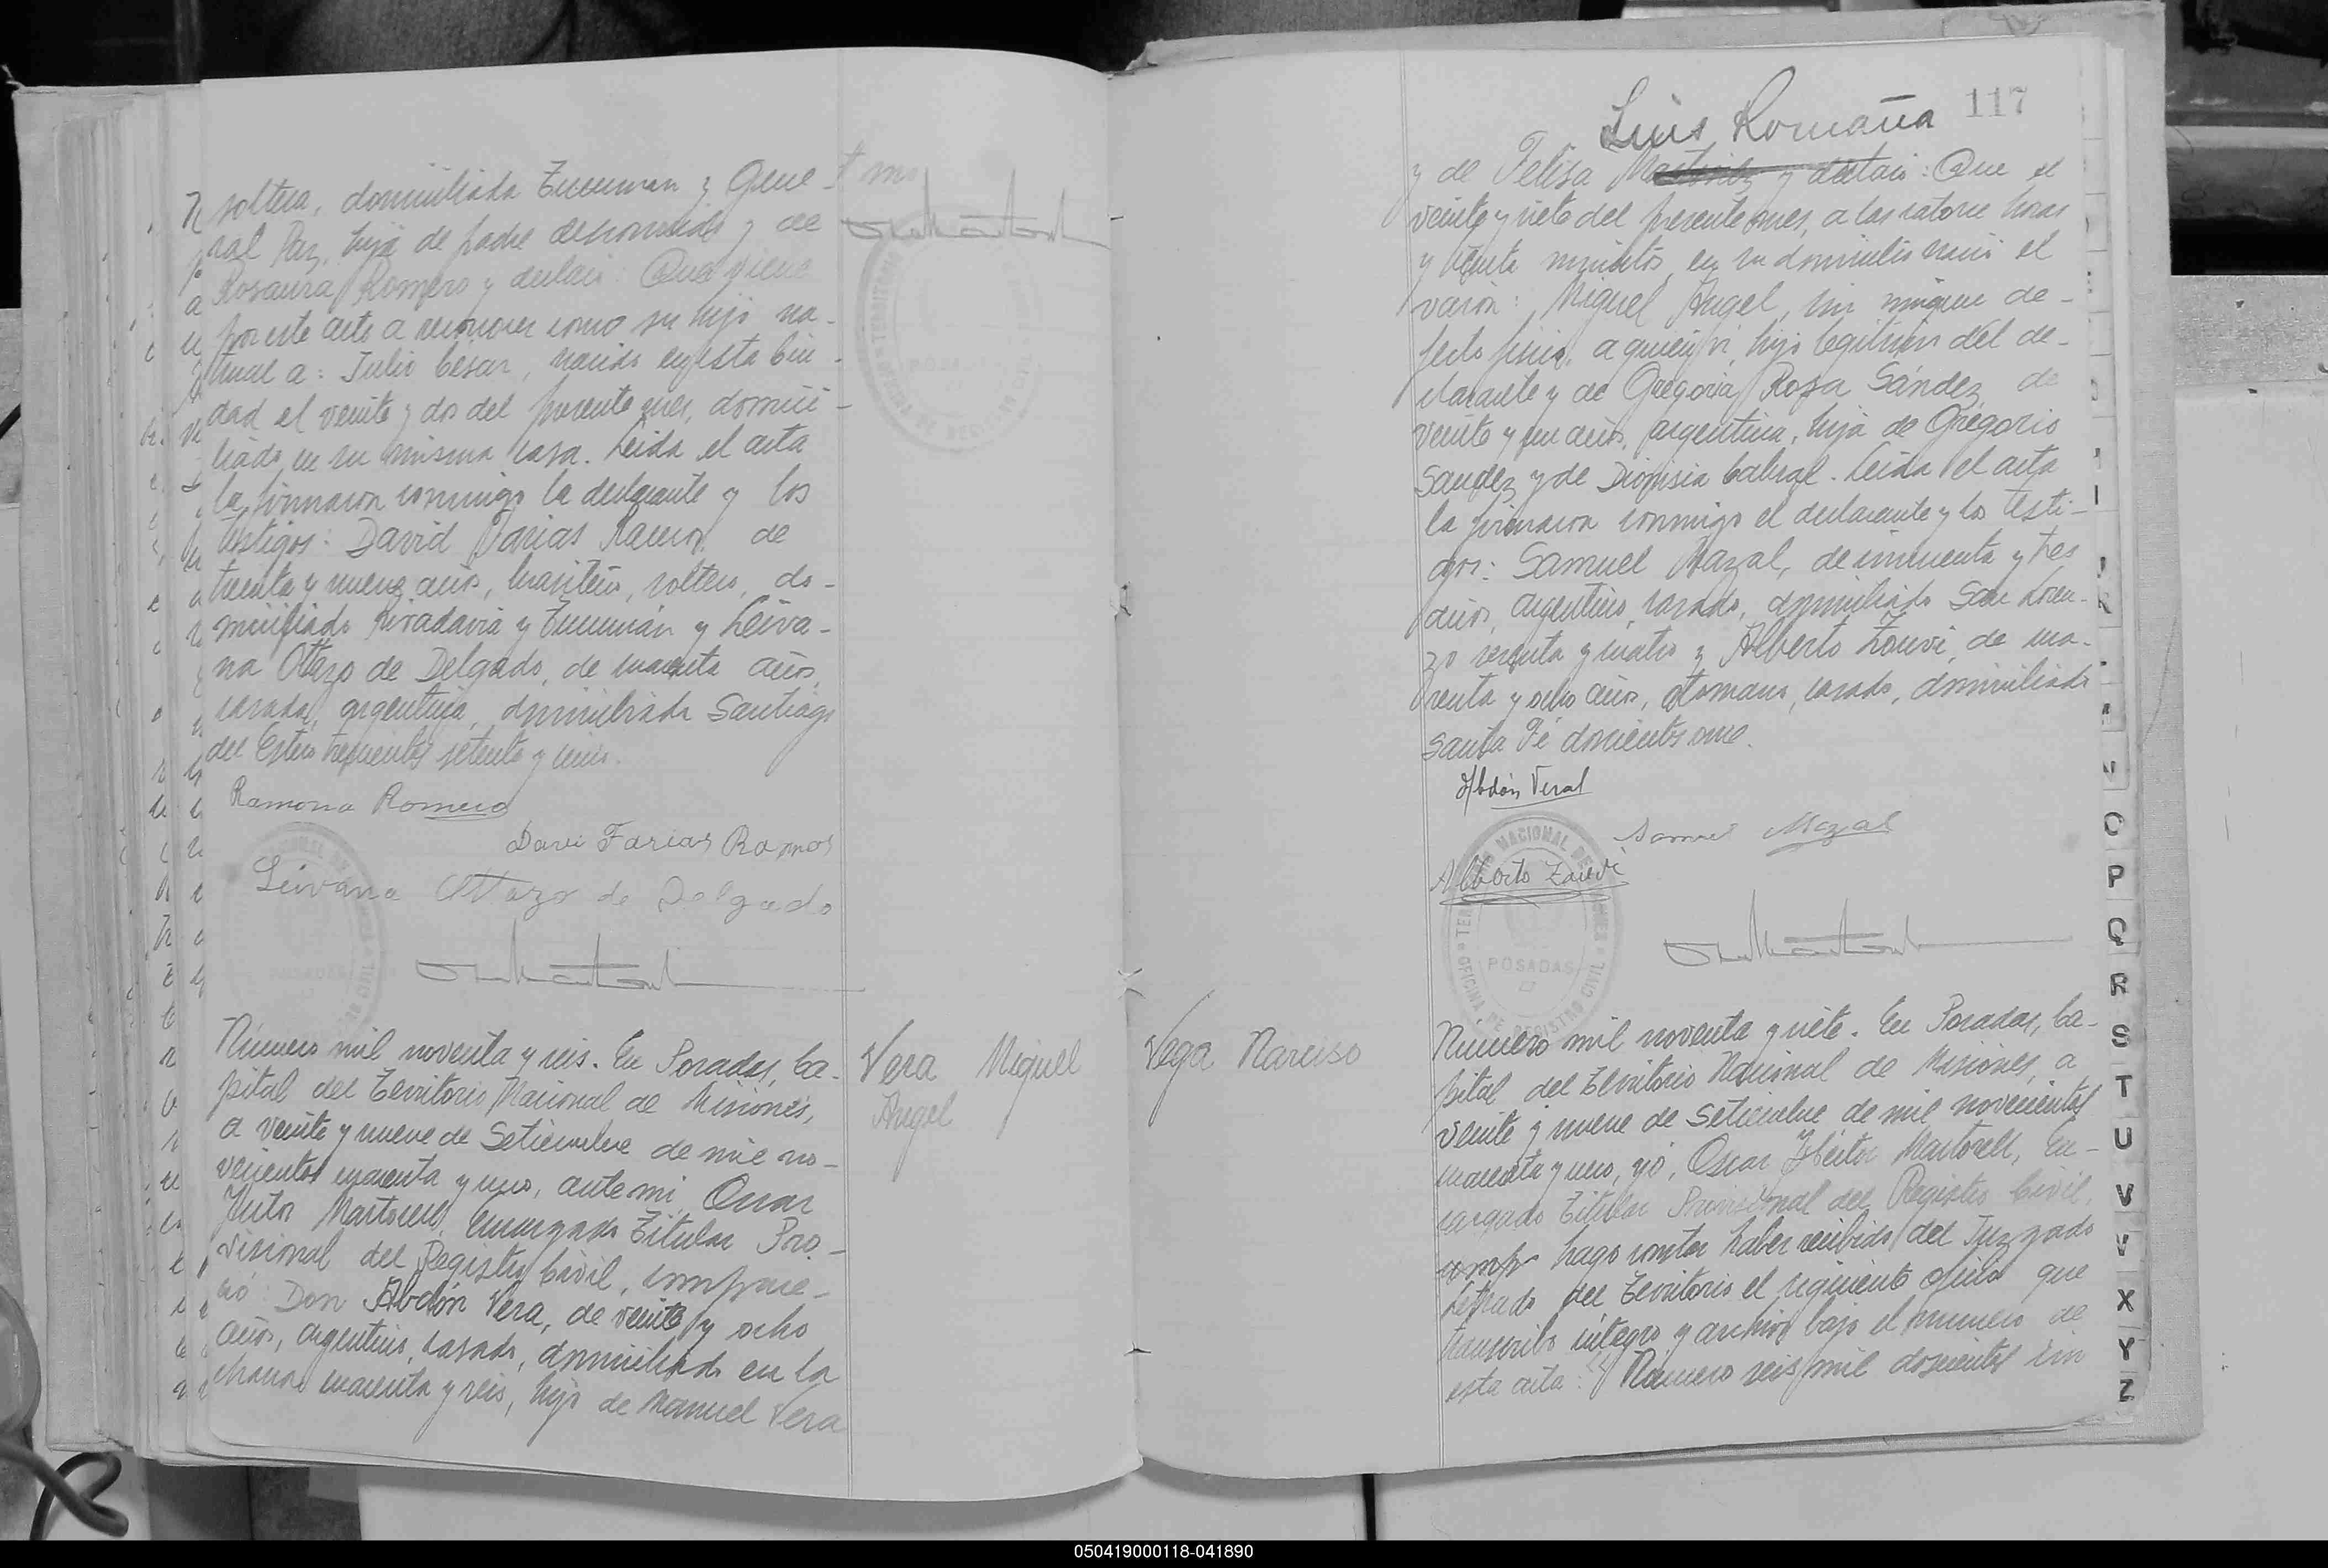 soltera, domiciliada Tucuman y Gene-
ral Paz, hija de padre desconocido y de
Rosaura Romero y declaró: Que viene
por este acto a reconocer como su hijo na-
tural a: Julio Cesar, nacido en esta Ciu-
dad el veinte y dos del presente mes, domici-
liado en su misma casa. Leida el acta
la firmaron conmigo la declarante y los
testigos: David Farias Ramos, de
treinta y nueve años, brasilero, soltero, do-
miciliado Rivadavia y Tucumán y Leiva-
na Ottazo de Delgado, de cuarenta años,
casada, argentina, domiciliada Santiago
del Estero trescientos setenta y seis.
Ramona Romero
Davi Farias Ramos
Leivana Ottazo de Delgado
Número mil noventa y seis. En Posadas, Ca-
pital del Territorio Nacional de Misiones,
a veinte y nueve de Setiembre de mil no-
vecientos cuarenta y uno, ante mi, Oscar
Hector Martorell, Encargado Titular Pro-
visional del Registro Civil, compare-
ció: Don Abdón Vera, de veinte y ocho
años, argentino, casado, domiciliado en la
chacra cuarenta y seis, hijo de Manuel Vera
Vera Miguel
Angel
Luis Romaña 117
y de Felisa y declaró: Que el
veinte y siete del presente mes, a las catorce horas
y treinta minutos, en su domicilio nació el
varón: Miguel Angel, sin ningun de-
fecto fisico, a quien vi, hijo legitimo del de-
clarante y de Gregoria Rosa Sández, de
veinte y un años, argentina, hija de Gregorio
Sandez y de Dionisia Cabral. Leida el acta
la firmaron conmigo el declarante y los testi-
gos: Samuel Mazal, de cincuenta y tres
años, argentino, casado, domiciliado San Loren-
zo sesenta y cuatro y Alberto Zouvi, de cua-
renta y ocho años, otomano, casado, domiciliado
Santa Fé doscientos once.
Abdón Vera
Samuel Mazal
Alberto Zouvi
TERRITORIO NACIONAL DE MISIONES
POSADAS
OFICINA DE REGISTRO CIVIL
Vega Narciso
Número mil noventa y siete. En Posadas, Ca-
pital del Territorio Nacional de Misiones, a
veinte y nueve de Setiembre de mil novecientos
cuarenta y uno, yó, Oscar Héctor Martorell, En-
cargado Titular Provisional del Registro Civil,
comp hago constar haber recibido del Juzgado
Letrado del Territorio el siguiente oficio que
transcribo integro y archivo bajo el numero de
esta acta: "Numero seis mil doscientos cin
O
P
Q
R
S
T
U
V
V
X
Y
Z
050419000118-041890